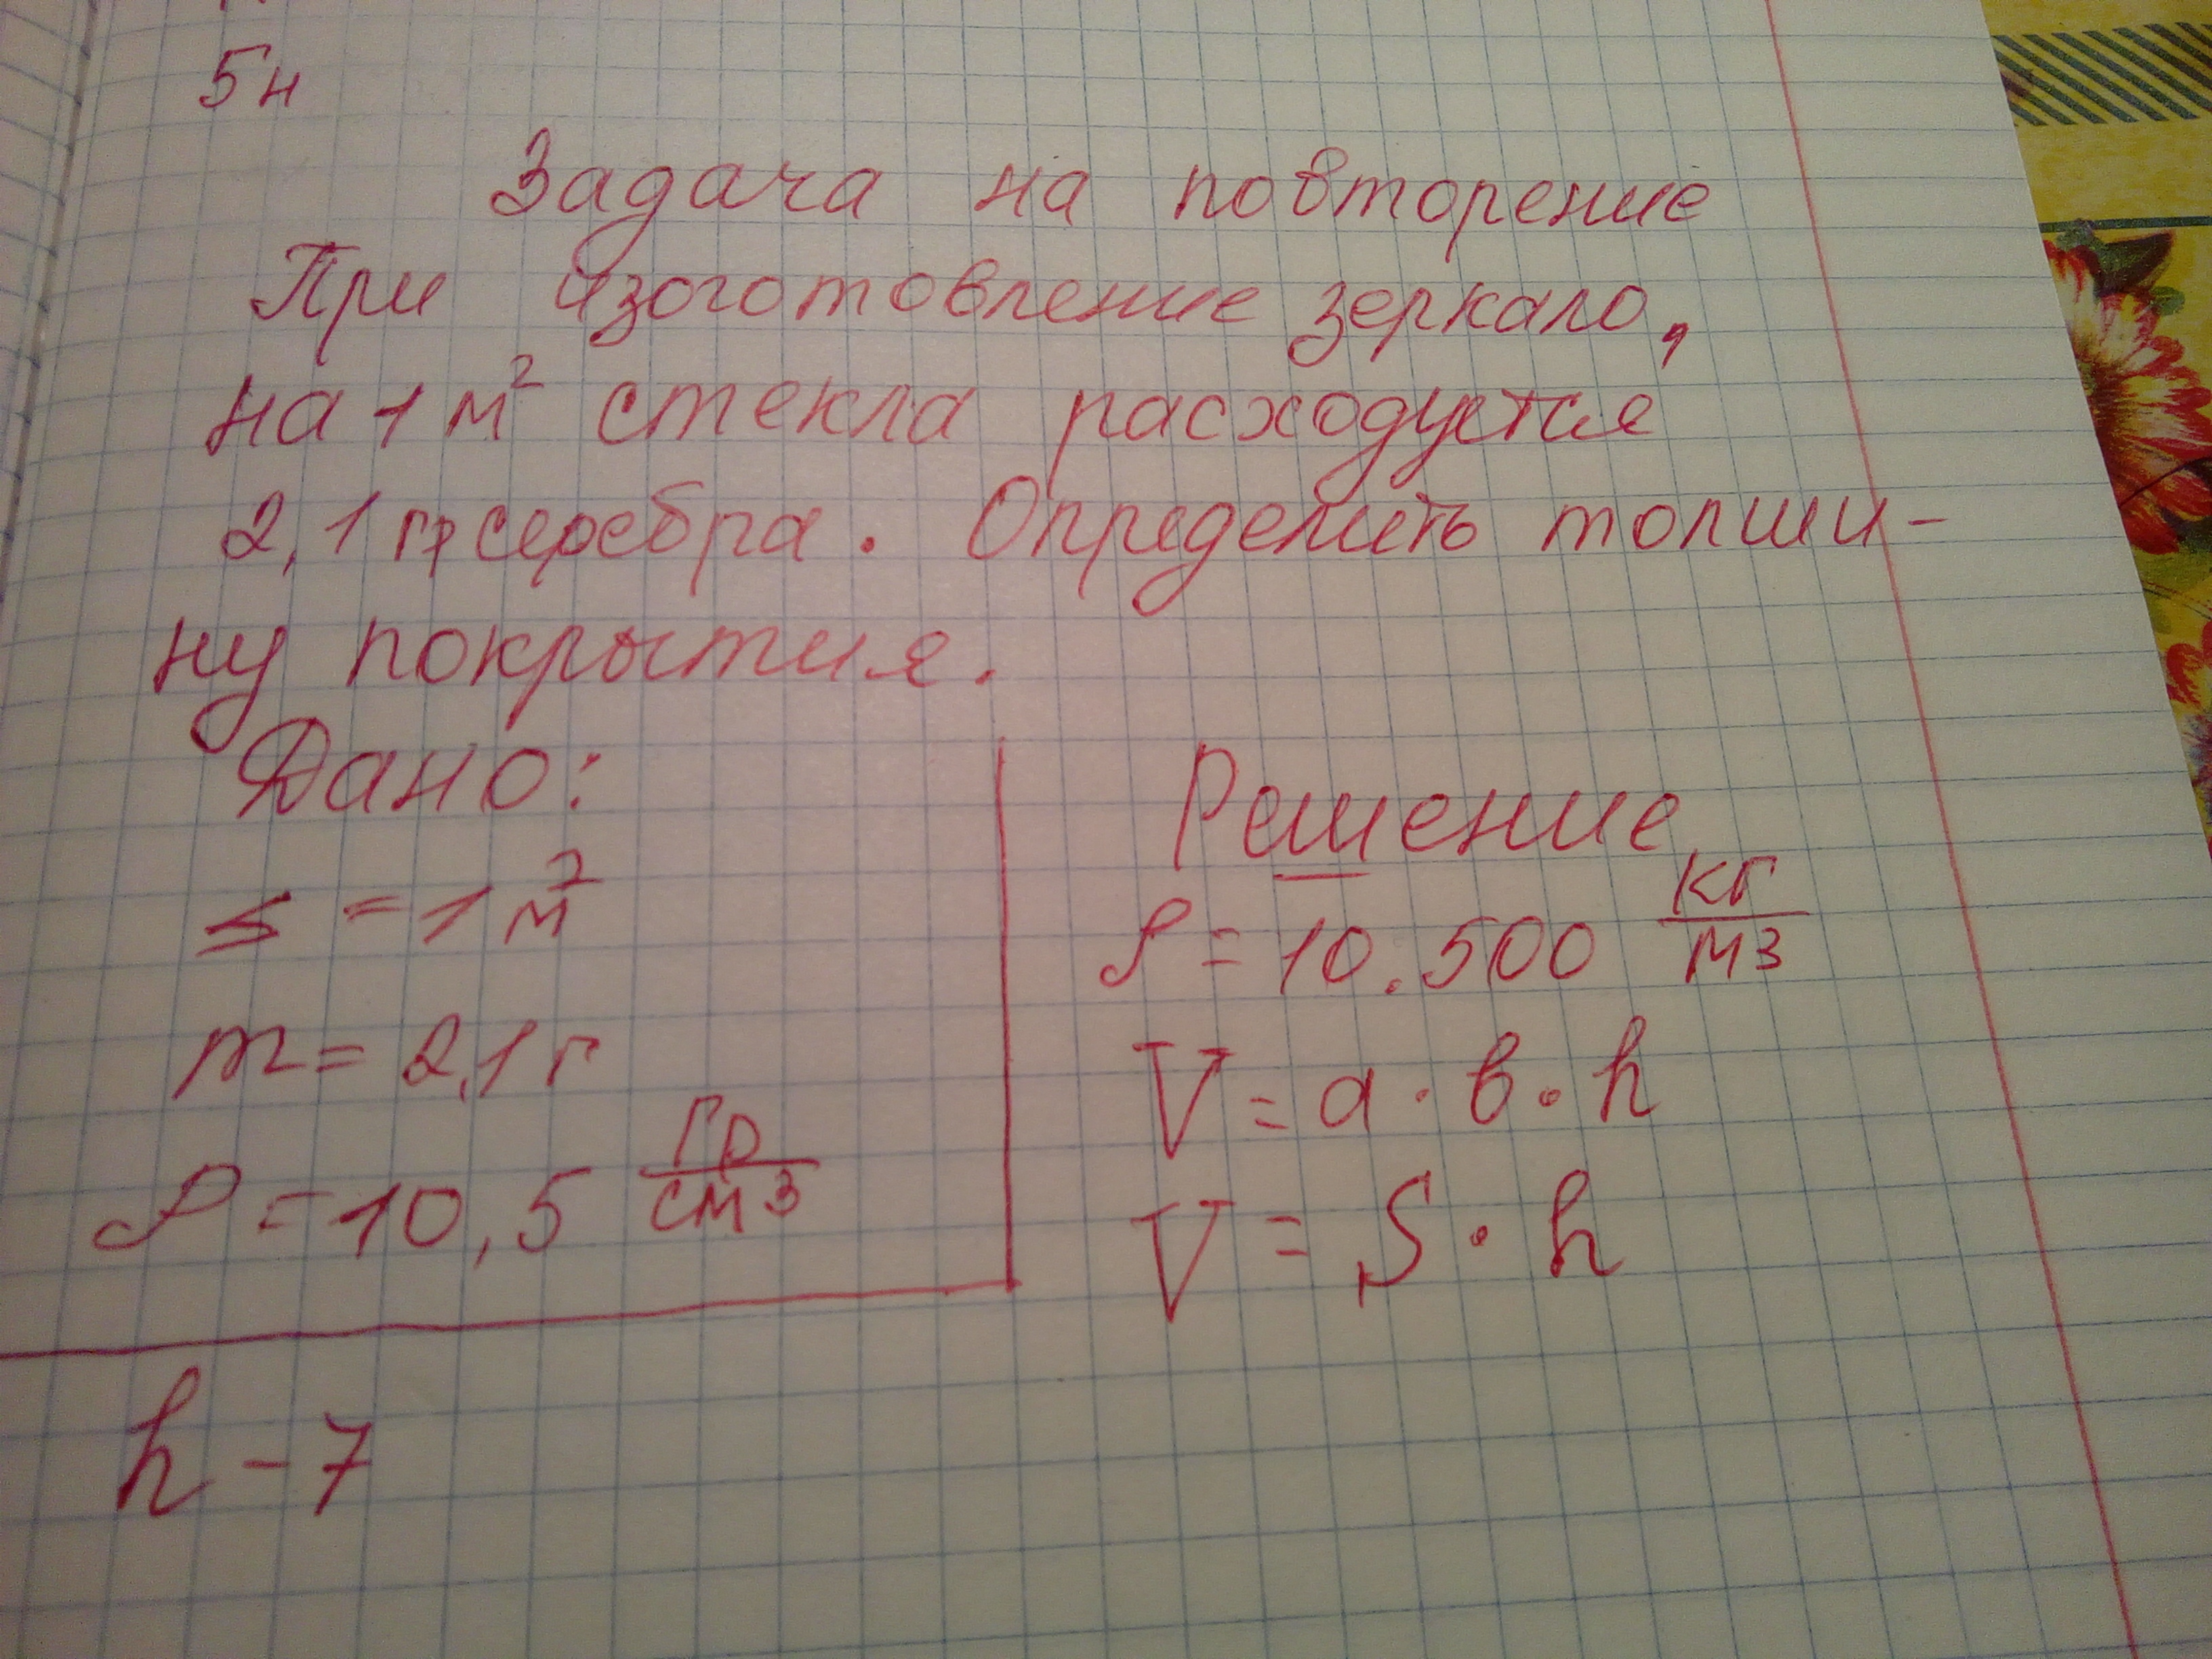 5н
Задача на повторение
При изоготовление зеркало,
на 1 м² стекла расходуется
2,1 гр серебра. Определить толши-
ну покрытия.
Дано:
s = 1 м²
m = 2,1 г
ρ = 10,5 гр/см3
h - ?
Решение
ρ = 10.500 кг/м3
V = a · в · h
V = S · h